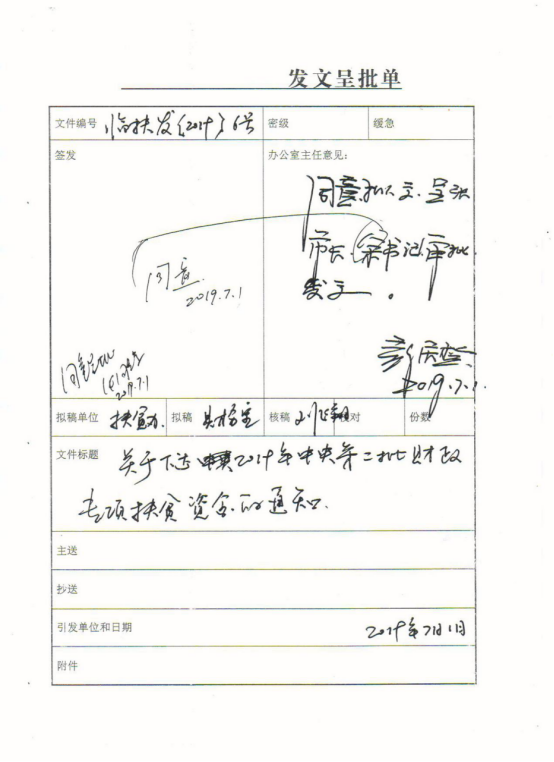 发文呈批单
文件编号 临扶发〔2019〕6号 密级 缓急
签发 办公室主任意见：
同意拟文.呈张
市长、余书记审批.
发文。
同意
2019.7.1
同意呈批
2019.7.1
2019.7.1.
拟稿单位 扶贫办. 拟稿 核稿 对 份数
文件标题 关于下达2019年中央第二批财政
专项扶贫资金的通知.
主送
抄送
引发单位和日期 2019年7月1日
附件